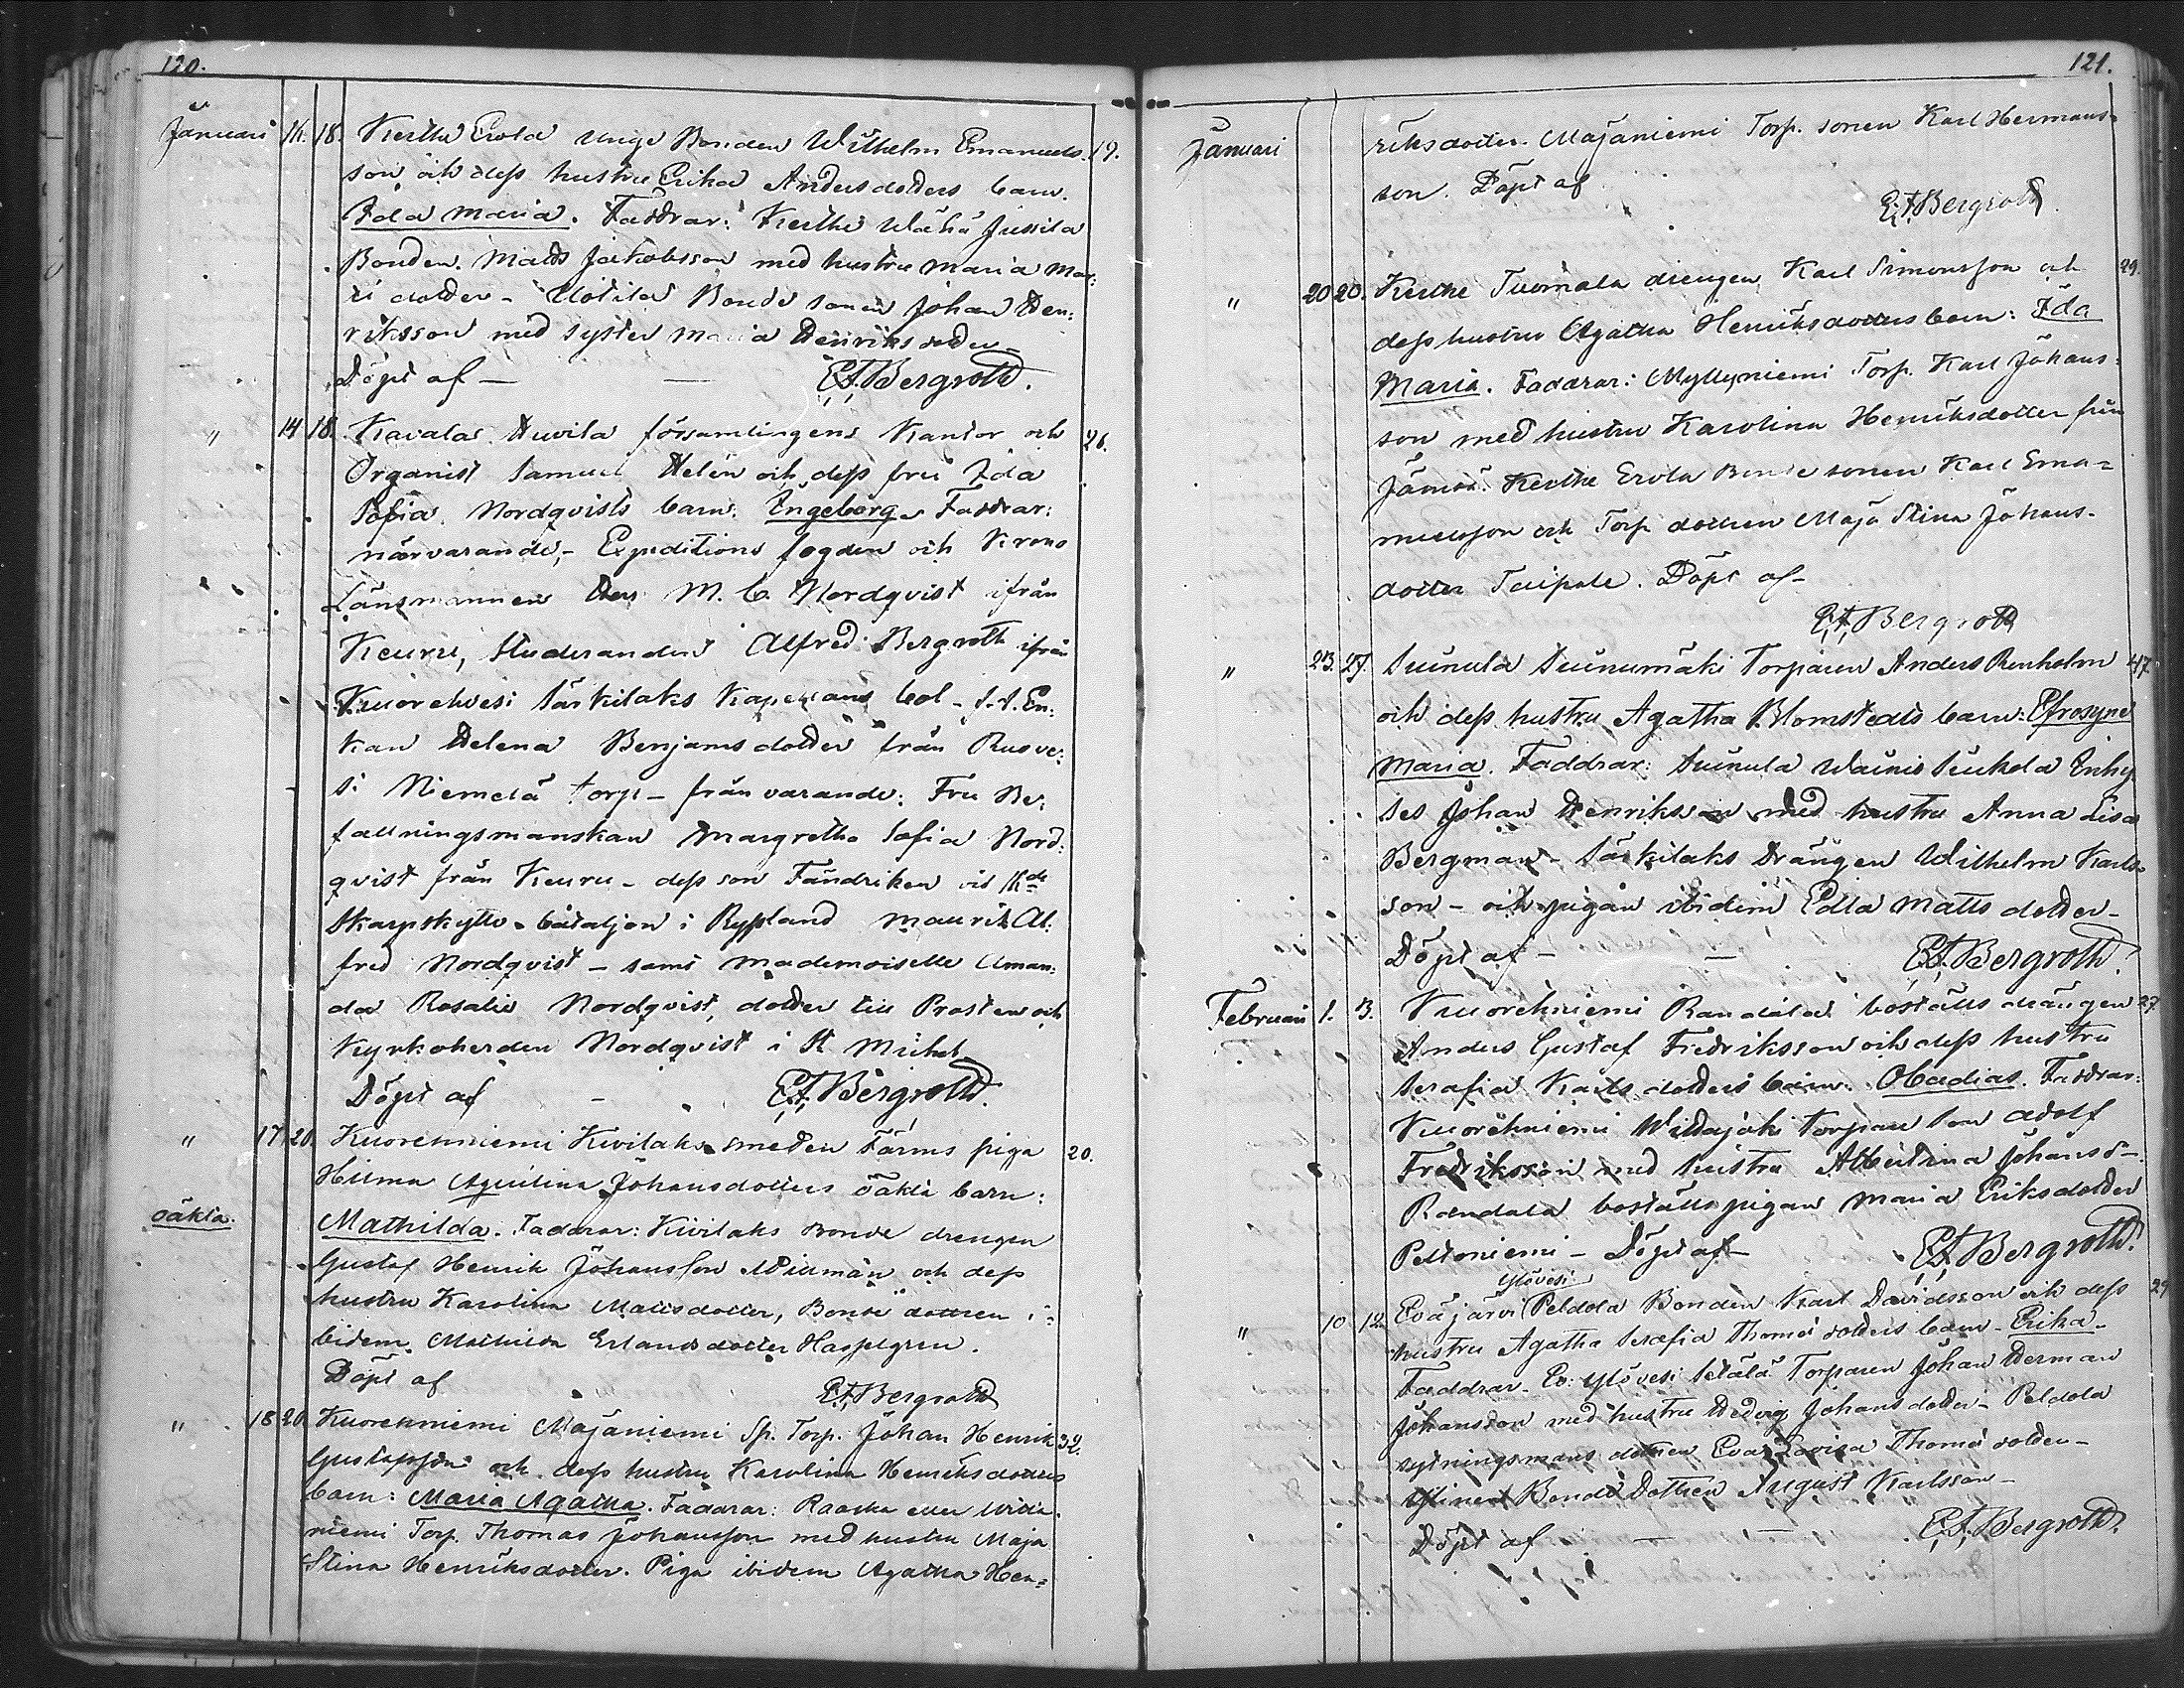 120.
Januari 14. 18. Kertte Erola unge Bonden Wilhelm Emanuels- 19.
son och dess hustru Erika Andersdotters barn.
Ida Maria. Faddrar: Kertte Wähä Jussila
Bonden Matts Jakobsson med hustru Maria Mar:
ti dotter - Uotila Bonde sonen Johan Hen:
riksson med syster Maria Henriksdotter -
Döpt af — — E.F. Bergroth.
" 14 18. Kavala Huvila församlingens Kantor och 26.
Organist Samuel Helén och dess fru Ida
Sofia Nordqvists barn: Ingeborg. Faddrar:
närvarande,- Expeditions fogden och Krono
Länsmannen Herr M. C. Nordqvist ifrån
Keuru, Studeranden Alfred Bergroth ifrån
Kuorehvesi Särkilaks Kapellans bol - s.t. En:
kan Helena Benjamsdotter från Ruove:
si Niemelä torp - frånvarande: Fru Be:
fallningsmanskan Margretha Sofia Nord:
qvist från Keuru - dess son Fändriken vid 14de
Skarpskytte-bataljon i Ryssland Maurits Al:
fred Nordqvist - samt Mademoiselle Aman:
da Rosalie Nordqvist, dotter till Prosten och
Kyrkoherden Nordqvist i St Michel
Döpt af - E.F. Bergroth.
" 17. 20. Kuorehniemi Kivilaks smeden Färms piga 20.
Hilma Aqvilina Johansdotters oäkta barn:
oäkta. Mathilda. Faddrar: Kivilaks Bonde drengen
Gustaf Henrik Johansson Willman och dess
hustru Karolina Mattsdotter, Bonde dottren i-
bidem Mathilda Erlandsdotter Hasselgren.
Döpt af E.F. Bergroth
" 18 20. Kuorehniemi Majaniemi Sp. Torp. Johan Henrik 32.
Gustafsson och dess hustru Karolina Henriksdotters
barn: Maria Agatha. Faddrar: Raaska eller Wida-
niemi Torp. Thomas Johansson med hustru Maja
Stina Henriksdotter. Piga ibidem Agatha Hen=
121.
Januari riksdotter. Majaniemi Torp. sonen Karl Hermans-
son. Döpt af
E.F. Bergroth.
" 20 20. Kertte Tuomala drengen Karl Simonsson och 29.
dess hustru Agatha Henriksdotters barn: Ida
Maria. Faddrar: Myllyniemi Torp. Karl Johans-
son med hustru Karolina Henriksdotter från
Jämsä. Kertte Erola Bonde sonen Karl Ema=
nuelsson och Torp. dottren Maja Stina Johans-
dotter Taipale. Döpt af-
E.F. Bergroth
" 23. 27. Suinula Suinumäki Torparen Anders Renholm 47
och dess hustru Agatha Blomstedts barn: Efrosyne
Maria. Faddrar: Suinula Wäinis Siukola Inhy-
ses Johan Henriksson med hustru Anna Lisa
Bergman - Särkilaks Drängen Wilhelm Karls-
son - och pigan ibidem Edla Matts dotter -
Döpt af - — E.F. Bergroth.
Februari 1. 3. Kuorehniemi Randala boställs drängen 27.
Anders Gustaf Fredriksson och dess hustru
Serafia Karls dotters barn: Obadias. Faddrar:
Kuorehniemi Willajoki Torpare son Adolf
Fredriksson med hustru Albertina Johansd-
Randala boställs pigan Maria Eriksdotter
Peltoniemi - Döpt af- E.F. Bergroth.
Ylövesi
" 10 12. Eväjärvi Peldola Bonden Karl Davidsson och dess 29
hustru Agatha Serafia Thomæ dotters barn - Erika -
Faddrar - Ev: Ylövesi Setälä Torparen Johan Herman
Johansson med hustru Hedvig Johans dotter - Peldola
sytningsmans dottren Eva Lovisa Thomæ dotter -
Bonde August Karlsson -
Döpt af — — E.F. Bergroth.